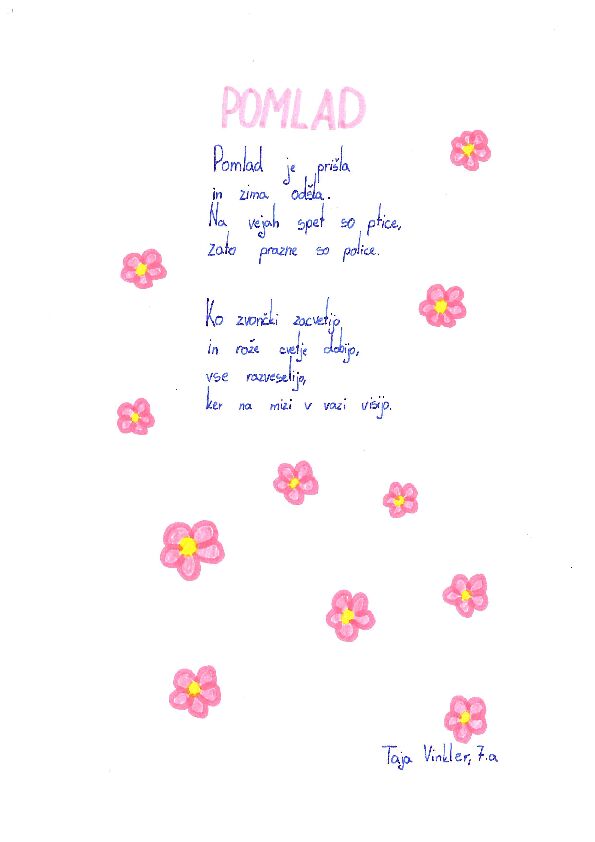 POMLAD
Pomlad je prišla
in zima odšla.
Na vejah spet so ptice,
zato prazne so police.
Ko zvončki zacvetijo
in rože cvetje dobijo,
vse razveselijo,
ker na mizi v vazi visijo.
Taja Vinkler, 7.a